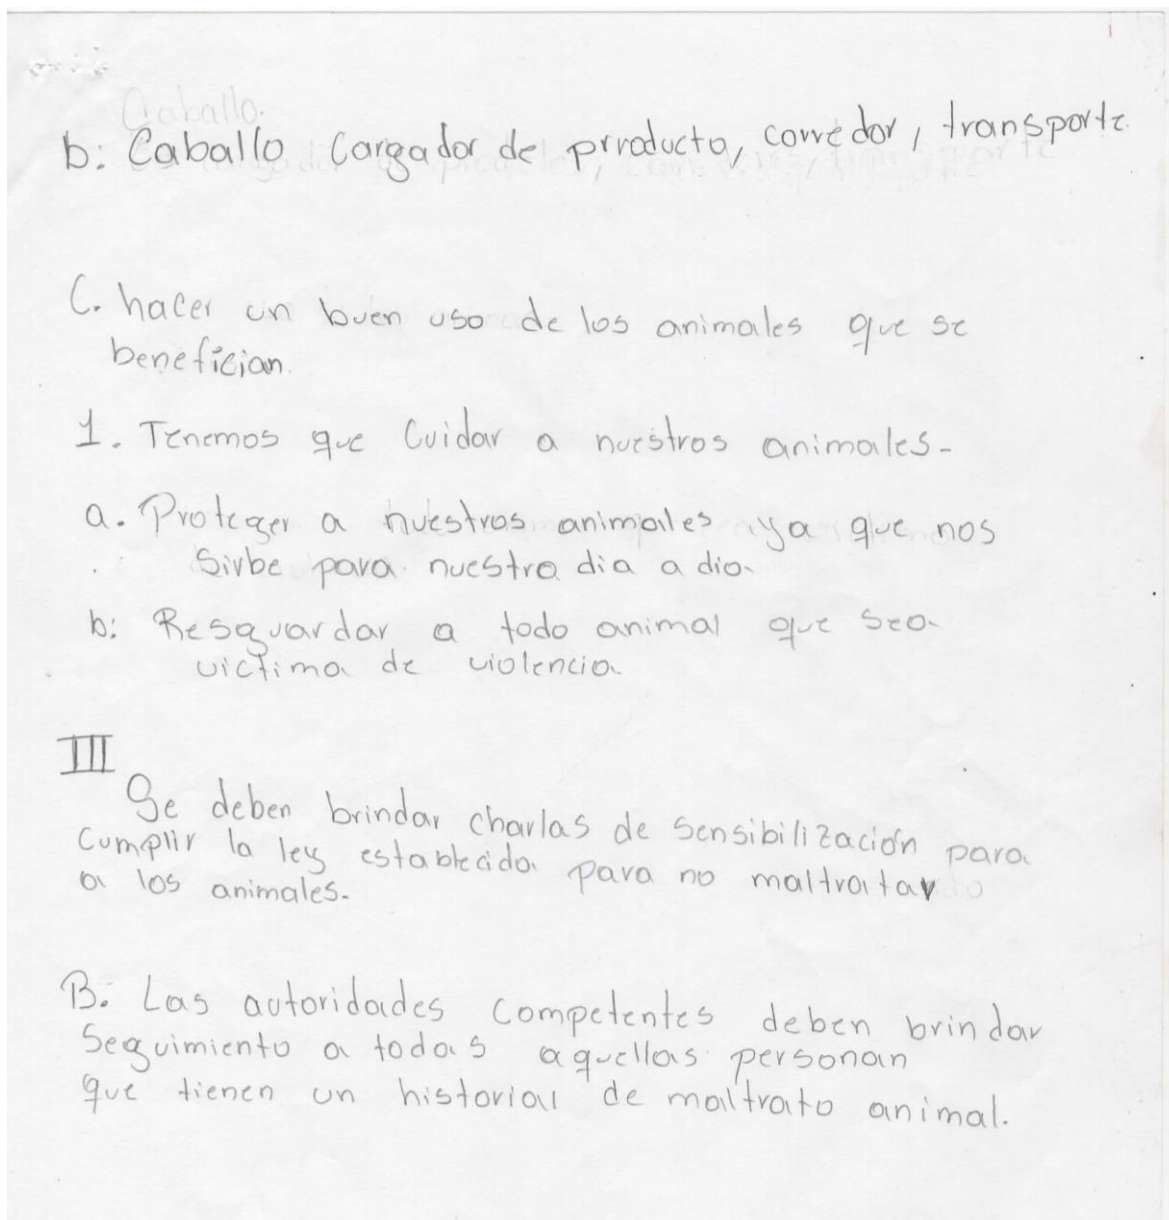 b: Caballo Cargador de prroducto, corredor, transporte.
C. hacer un buen uso de los animales que se
benefician.
1. Tenemos que Cuidar a nuestros animales-
a. Proteger a nuestros animales ya que nos
Sirbe para nuestro dia a dia.
b: Resguardar a todo animal que sea
victima de violencia.
III
Se deben brindar charlas de Sensibilización para
Cumplir la ley establecida para no maltratar
a los animales.
B. Las autoridades Competentes deben brindar
Seguimiento a todas aquellas personan
que tienen un historial de maltrato animal.